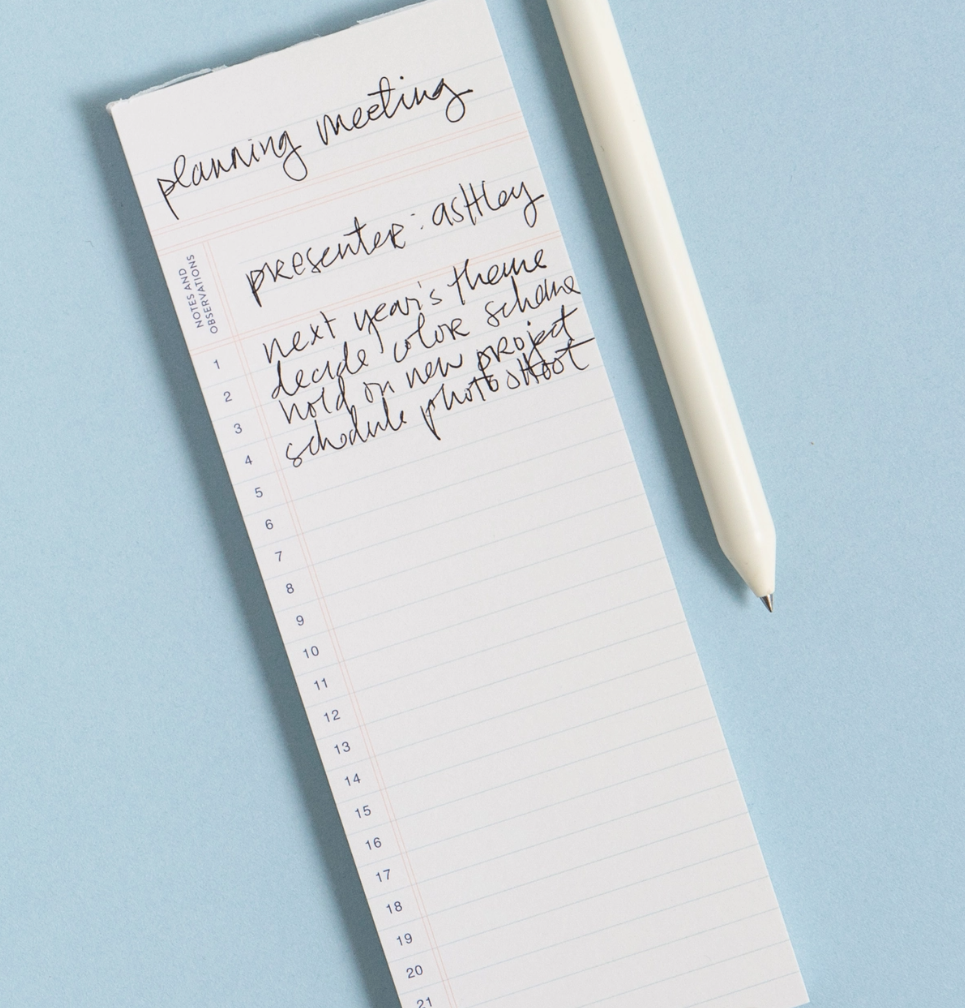 planning meeting
presenter: ashley
NOTES AND
OBSERVATIONS
next year's theme
1
decide color scheme
2
hold on new project
3
schedule photoshoot
4
5
6
7
8
9
10
11
12
13
14
15
16
17
18
19
20
21